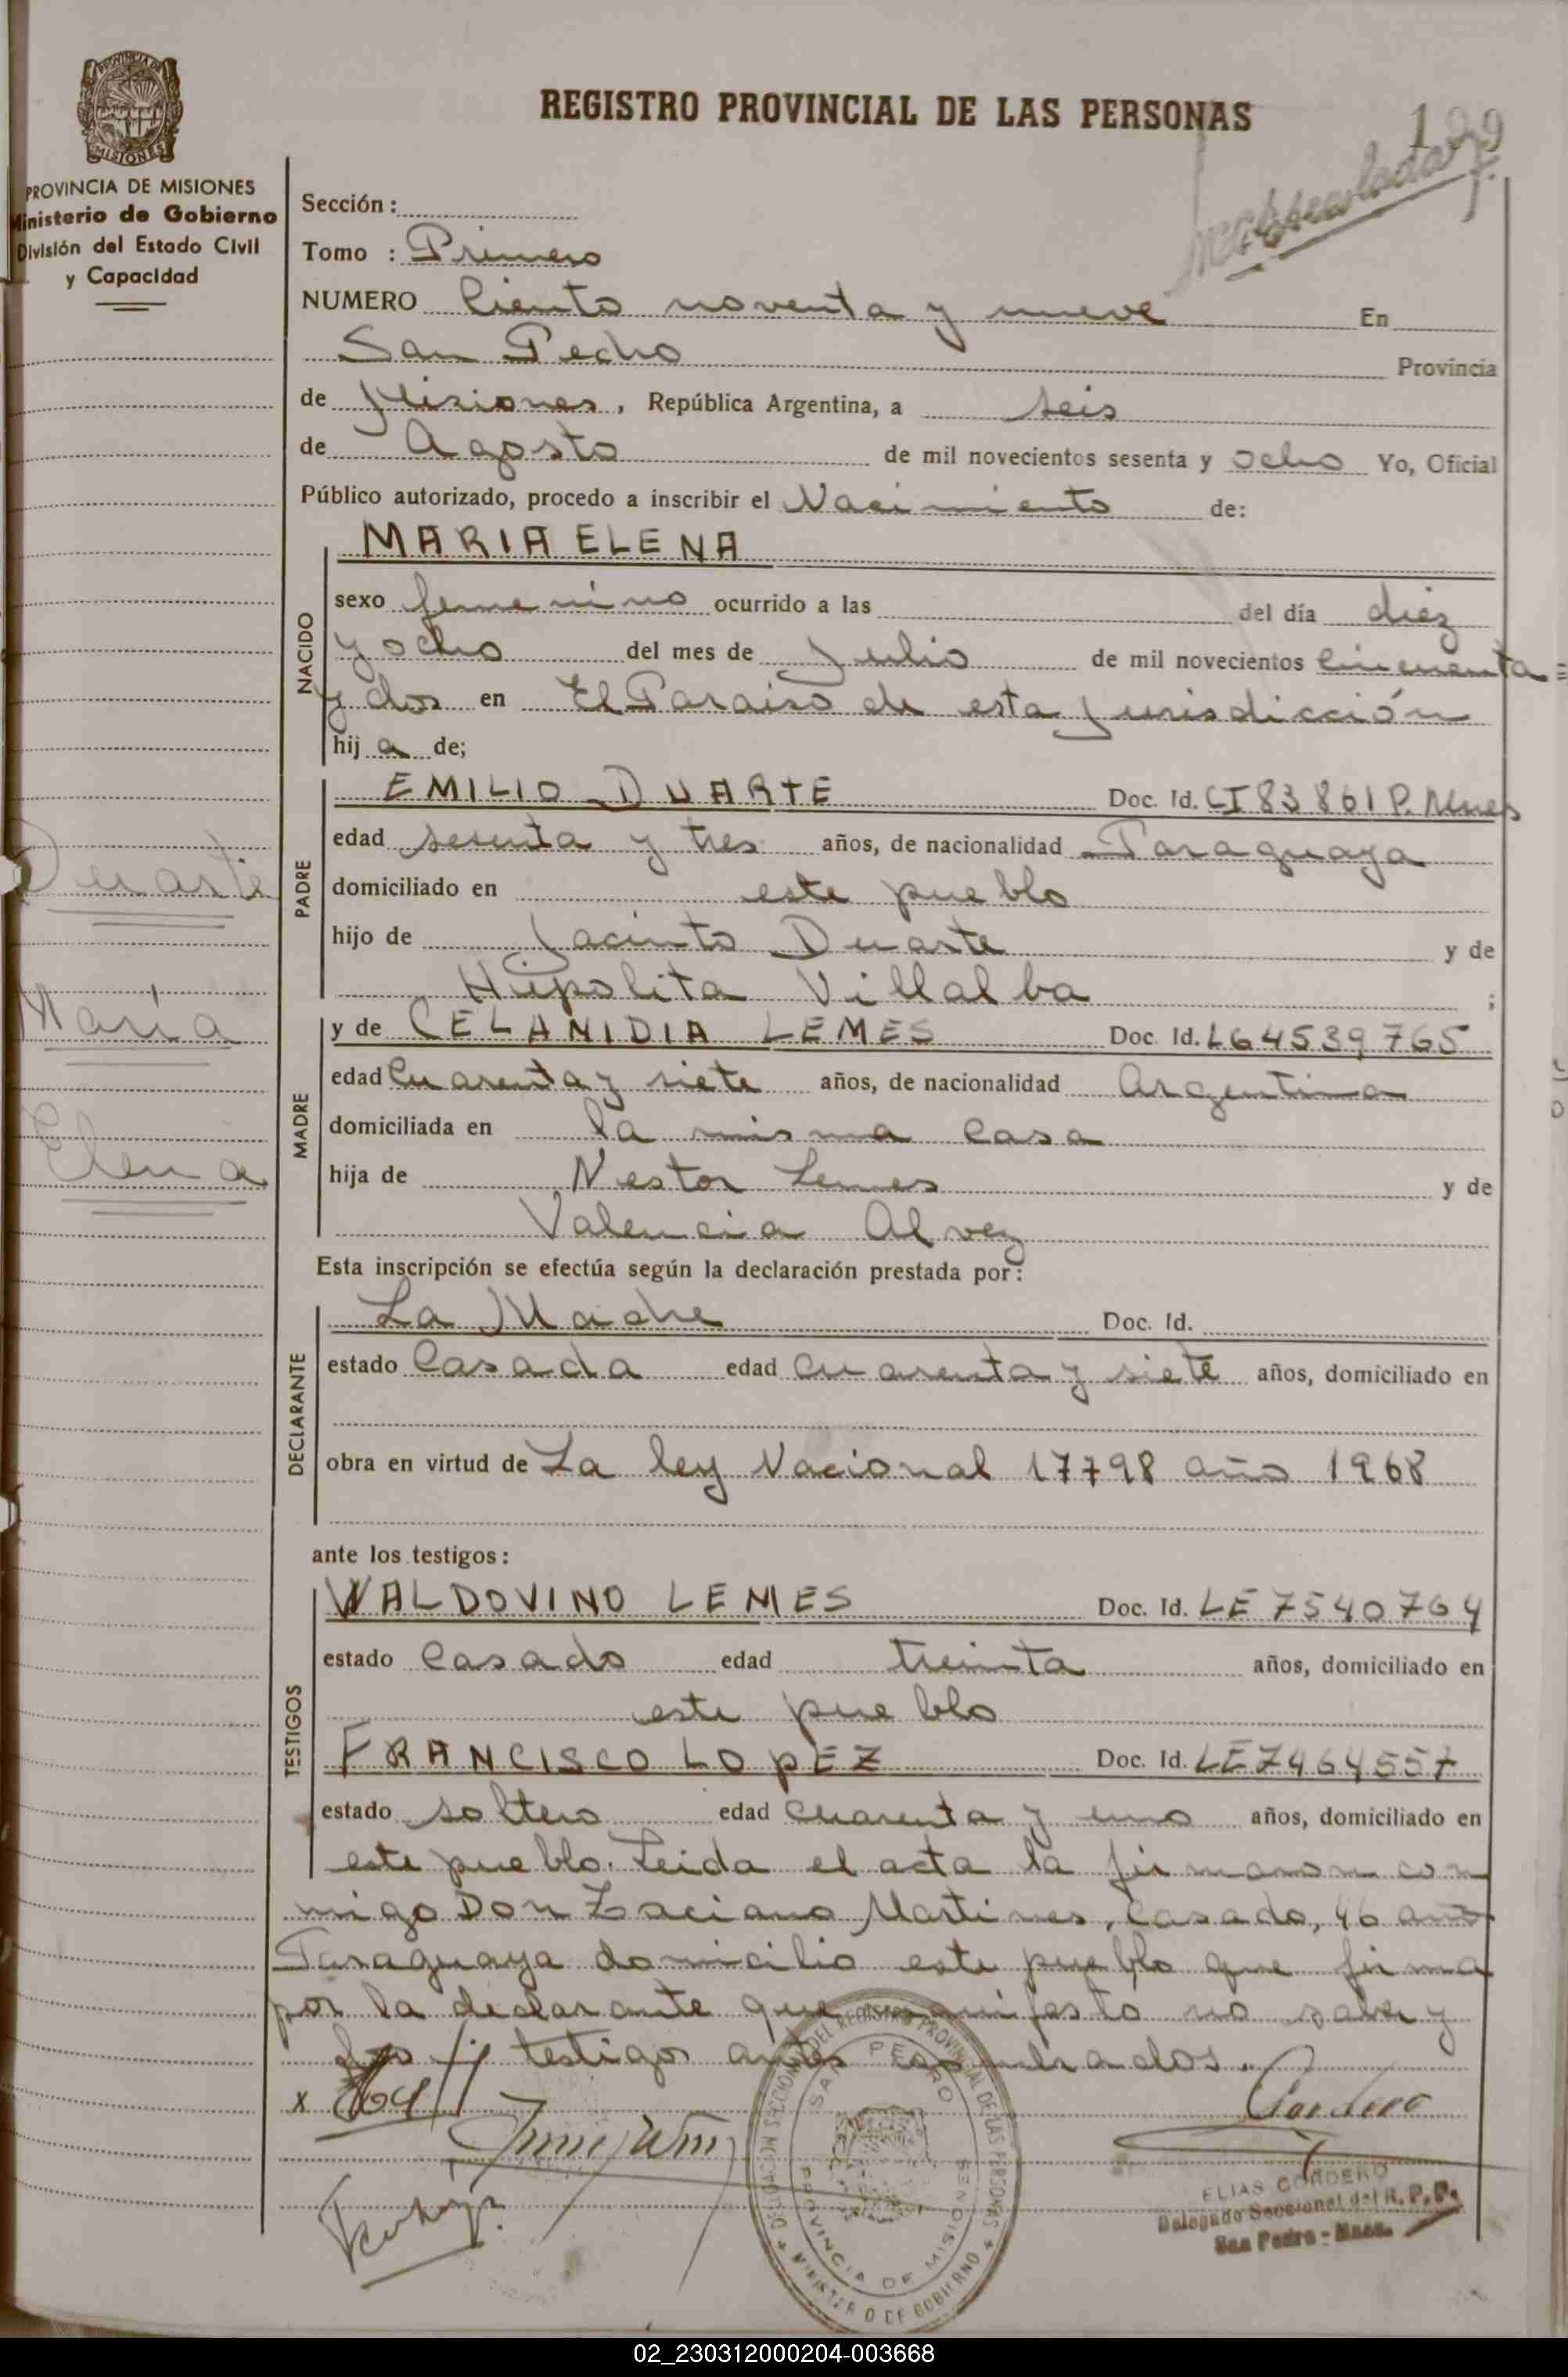 REGISTRO PROVINCIAL DE LAS PERSONAS
199
PROVINCIA DE MISIONES
MISIONES
PROVINCIA DE MISIONES
Ministerio de Gobierno
División del Estado Civil
y Capacidad
Sección :
Tomo : Primero
NUMERO Ciento noventa y nueve En
San Pedro Provincia
de Misiones, República Argentina, a seis
de Agosto de mil novecientos sesenta y ocho Yo, Oficial
Público autorizado, procedo a inscribir el Nacimiento de:
NACIDO
MARIA ELENA
sexo femenino ocurrido a las del día diez
y ocho del mes de Julio de mil novecientos Cincuenta=
y dos en El Paraiso de esta jurisdicción
hij a de;
PADRE
EMILIO DUARTE Doc. Id. CI 83861 P. Mnes
edad sesenta y tres años, de nacionalidad Paraguaya
domiciliado en este pueblo
hijo de Jacinto Duarte y de
Hipolita Villalba ;
Duarte
María
Elena
MADRE
y de CELANIDIA LEMES Doc. Id. L64539765
edad Cuarenta y siete años, de nacionalidad Argentina
domiciliada en la misma casa
hija de Nestor Lemes y de
Valencia Alvez
Esta inscripción se efectúa según la declaración prestada por:
DECLARANTE
La Madre Doc. Id.
estado Casada edad cuarenta y siete años, domiciliado en
obra en virtud de La ley Nacional 17798 año 1968
ante los testigos:
TESTIGOS
WALDOVINO LEMES Doc. Id. LE 7540764
estado Casado edad treinta años, domiciliado en
este pueblo
FRANCISCO LOPEZ Doc. Id. LE7464557
estado soltero edad cuarenta y uno años, domiciliado en
este pueblo. Leida el acta la firmaron con
migo Don Zaciano Martines, Casado, 46 años
Paraguaya domicilio este pueblo que firma
por la declarante que manifesto no saber y
los testigos antes
x
Cordero
DELEGACION SECCIONAL DEL REGISTRO PROVINCIAL DE LAS PERSONAS
MINISTERIO DE GOBIERNO
SAN PEDRO
PROVINCIA DE MISIONES
ELIAS CORDERO
Delegado Seccional del R. P. P.
San Pedro - Mnes.
02_230312000204-003668